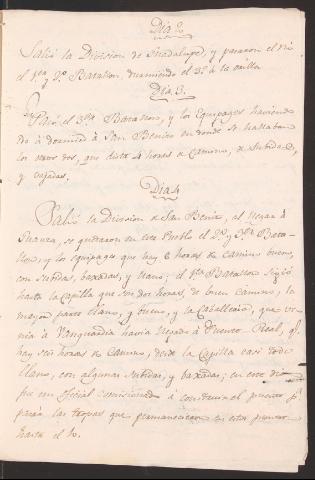 Dia 2.
Salió la Division de Guadalupe, y pasaron el Rio
el 1ro y 2o Batallon, durmiendo el 3o a la orilla
Dia 3.
Pasó el 3o Batallon, y los Equipages haviendo
ido á dormir á San Benito en donde se hallaban
los otros dos, que dista 4 horas de camino, de subidas,
y vajadas.
Dia 4
Salió la Division de San Benito, al llegar á
se quedaron en este Pueblo el 2o y 3o Bata-
llon, y los equipages que hay 6 horas de camino bueno,
con subidas, baxadas, y llano; el 1ro Batallon siguió
hasta la Capilla que son dos horas, de buen camino, la
mayor parte llano, y bueno, y la Caballeria, que ve-
nia á Vanguardia havia llegado á Puerto Real, qe
hay seis horas de camino, desde la Capilla casi todo
llano, con algunas subidas, y baxadas; en este dia
fue un oficial comisionado á considerar el puerto pa
parar las tropas que permanecieron en este puerto
hasta el 10.